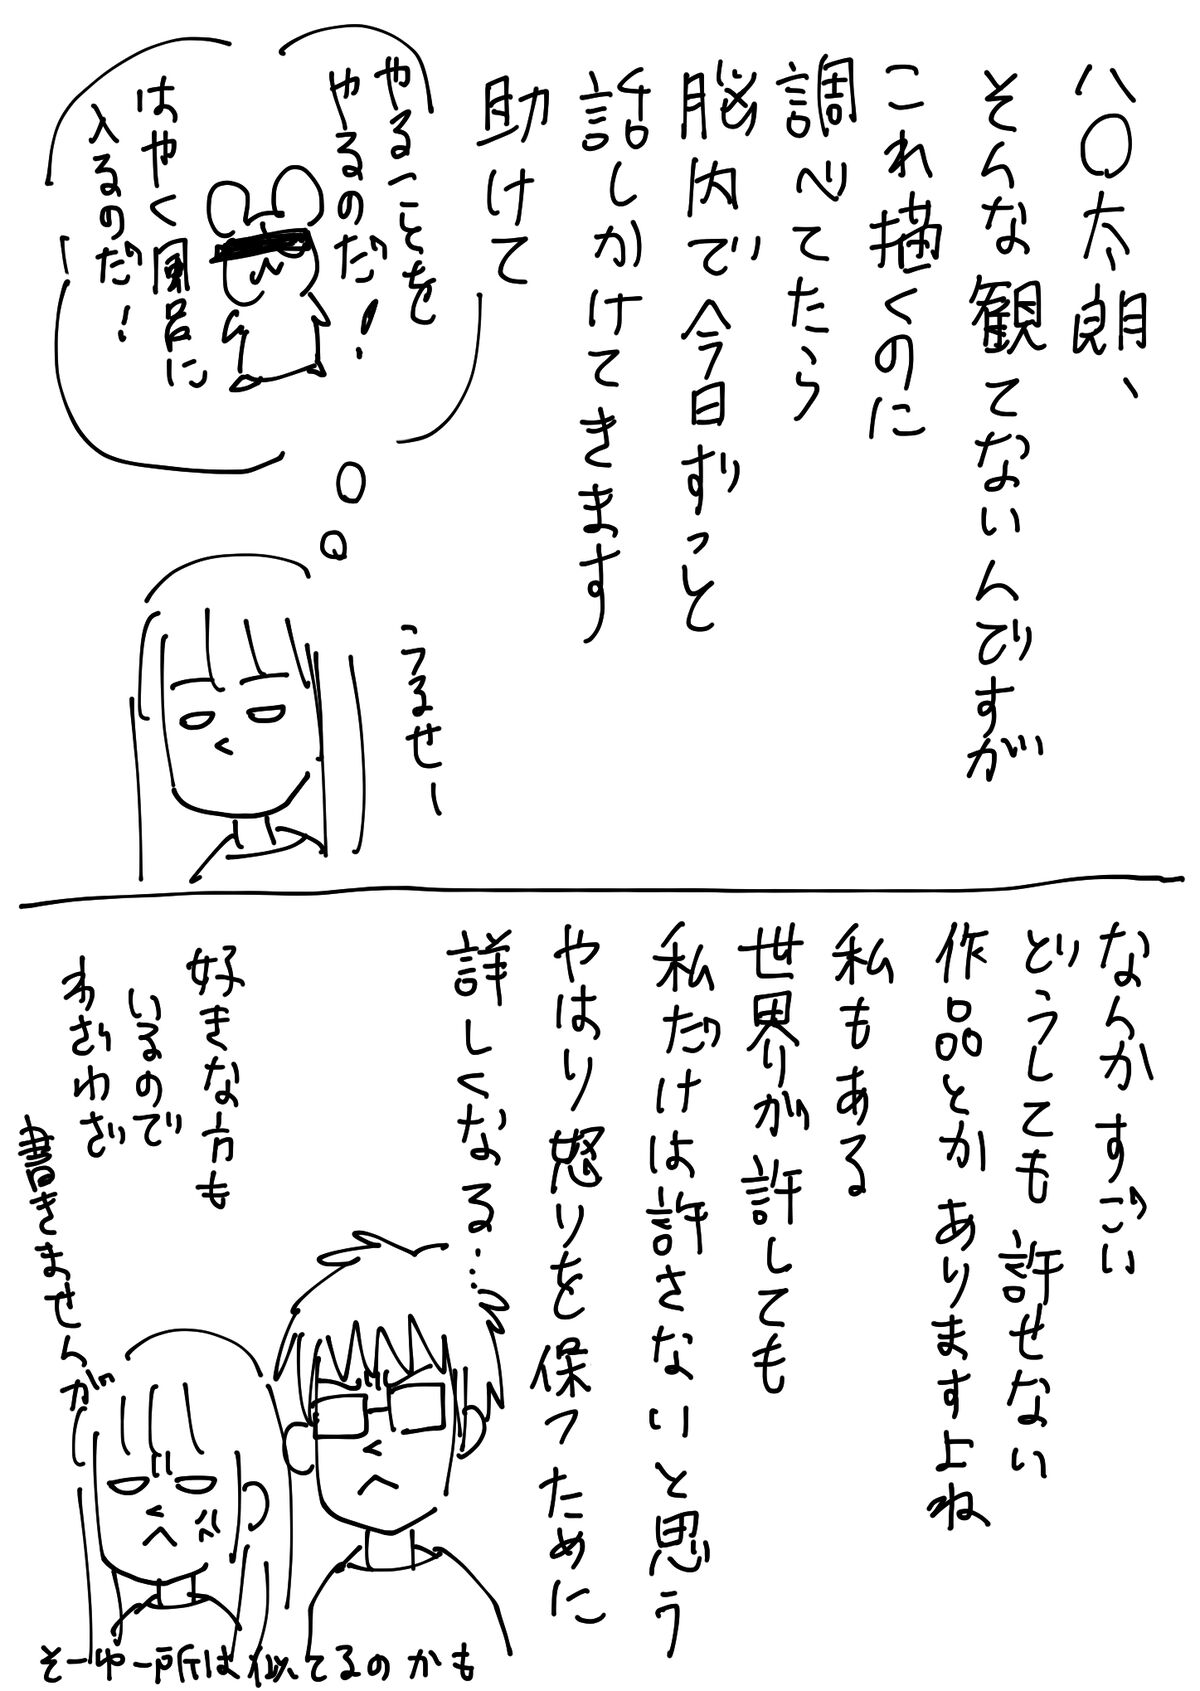 ハ〇太郎、
そんな観てないんですが
これ描くのに
調べてたら
脳内で今日ずっと
話しかけてきます
助けて
やることを
やるのだ！
はやく風呂に
入るのだ！
うるせー
なんかすごい
どうしても許せない
作品とかありますよね
私もある
世界が許しても
私だけは許さないと思う
やはり怒りを保つために
詳しくなる…
好きな方も
いるので
わざわざ
書きませんが
そーゆー所は似てるのかも